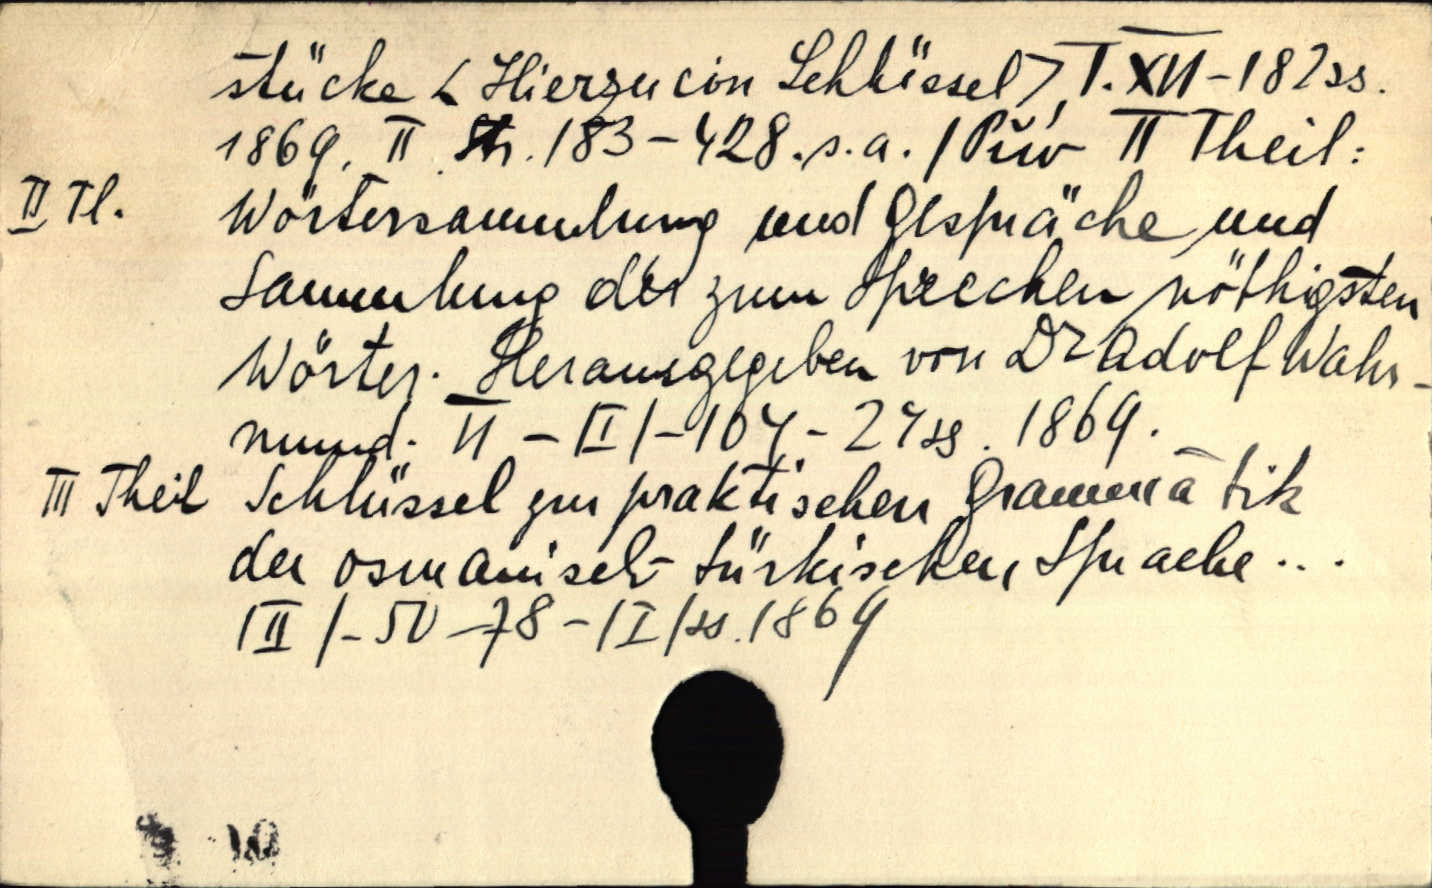 stücke < Hierzu ein Schlüssel >, I. XII-182 ss.
1869, II Str. 183-428. s.a. / II Theil:
II Tl. Wörtersammlung und Gespräche und
Sammlung der zum Sprechen nöthigsten
Wörter. Herausgegeben von Dr Adolf Wahr-
mund. II - /II/ - 104 - 24 ss. 1869.
III Theil Schlüssel zur praktischen Grammatik
der osmanisch-türkischen Sprache ...
/II/ - 50 - 78 - /I/ ss. 1869